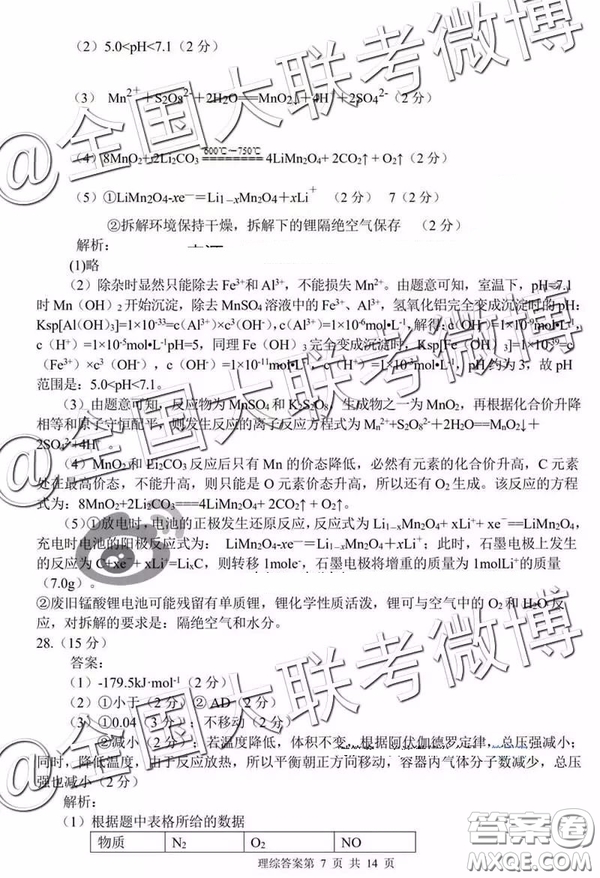 （2）5.0<pH<7.1（2 分）
（3） Mn2++S2O82-+2H2O═MnO2↓+4H++2SO42-（2 分）
（4）8MnO2+2Li2CO3 600℃～750℃ 4LiMn2O4+ 2CO2↑ + O2↑（2 分）
（5）①LiMn2O4-xe—＝Li1-xMn2O4＋xLi+ （2 分） 7（2 分）
②拆解环境保持干燥，拆解下的锂隔绝空气保存 （2 分）
解析：
(1)略
（2）除杂时显然只能除去 Fe3+和 Al3+，不能损失 Mn2+。由题意可知，室温下，pH=7.1
时 Mn（OH）2 开始沉淀，除去 MnSO4 溶液中的 Fe3+、Al3+，氢氧化铝完全变成沉淀时的 pH：
Ksp[Al（OH）3]=1×10-33=c（Al3+）×c3（OH-），c（Al3+）=1×10-6mol•L-1，解得：c（OH-）=1×10-9mol•L-1，
c（H+）=1×10-5mol•L-1pH=5，同理 Fe（OH）3 完全变成沉淀时，Ksp[Fe（OH）3]=1×10-39=c
（Fe3+）×c3（OH-），c（OH-）=1×10-11mol•L-1，c（H+）=1×10-3mol•L-1，pH 约为 3，故 pH
范围是：5.0<pH<7.1。
（3）由题意可知，反应物为 MnSO4 和 K2S2O8，生成物之一为 MnO2，再根据化合价升降
相等和原子守恒配平，则发生反应的离子反应方程式为 Mn2++S2O82-+2H2O═MnO2↓+
2SO42-+4H+。
（4）MnO2 和 Li2CO3 反应后只有 Mn 的价态降低，必然有元素的化合价升高，C 元素
处在最高价态，不能升高，则只能是 O 元素价态升高，所以还有 O2 生成。该反应的方程
式为：8MnO2+2Li2CO3===4LiMn2O4+ 2CO2↑ + O2↑。
（5）①放电时，电池的正极发生还原反应，反应式为 Li1-xMn2O4+ xLi++ xe-==LiMn2O4，
充电时电池的阳极反应式为： LiMn2O4-xe—＝Li1-xMn2O4＋xLi+；此时，石墨电极上发生
的反应为 C+xe-+ xLi+=LixC，则转移 1mole-，石墨电极将增重的质量为 1molLi+的质量
（7.0g）。
②废旧锰酸锂电池可能残留有单质锂，锂化学性质活泼，锂可与空气中的 O2 和 H2O 反
应，对拆解的要求是：隔绝空气和水分。
28.（15 分）
答案：
（1）-179.5kJ·mol-1（2 分）
（2）①小于（2 分）② AD（2 分）
（3）①0.04（3 分）；不移动（2 分）
②减小（2 分）；若温度降低，体积不变，根据阿伏伽德罗定律，总压强减小；
同时，降低温度，由于反应放热，所以平衡朝正方向移动，容器内气体分子数减少，总压
强也减小（2 分）
解析：
（1）根据题中表格所给的数据
物质 N2 O2 NO
理综答案第 7 页 共 14 页
@全国大联考微博
@全国大联考微博
@全国大联考微博
答案圈
MXQE.COM